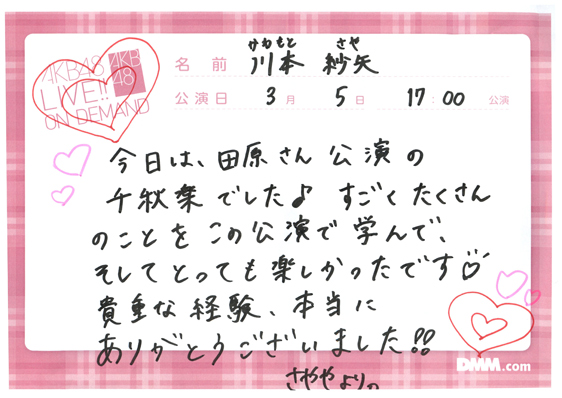 AKB48 AKB48
LIVE!!
ON DEMAND
かわもと さや
名前 川本 紗矢
公演日 3月 5日 17:00 公演
今日は、田原さん公演の
千秋楽でした♪ すごくたくさん
のことをこの公演で学んで、
そしてとっても楽しかったです♡
貴重な経験、本当に
ありがとうございました!!
さややより。
DMM.com